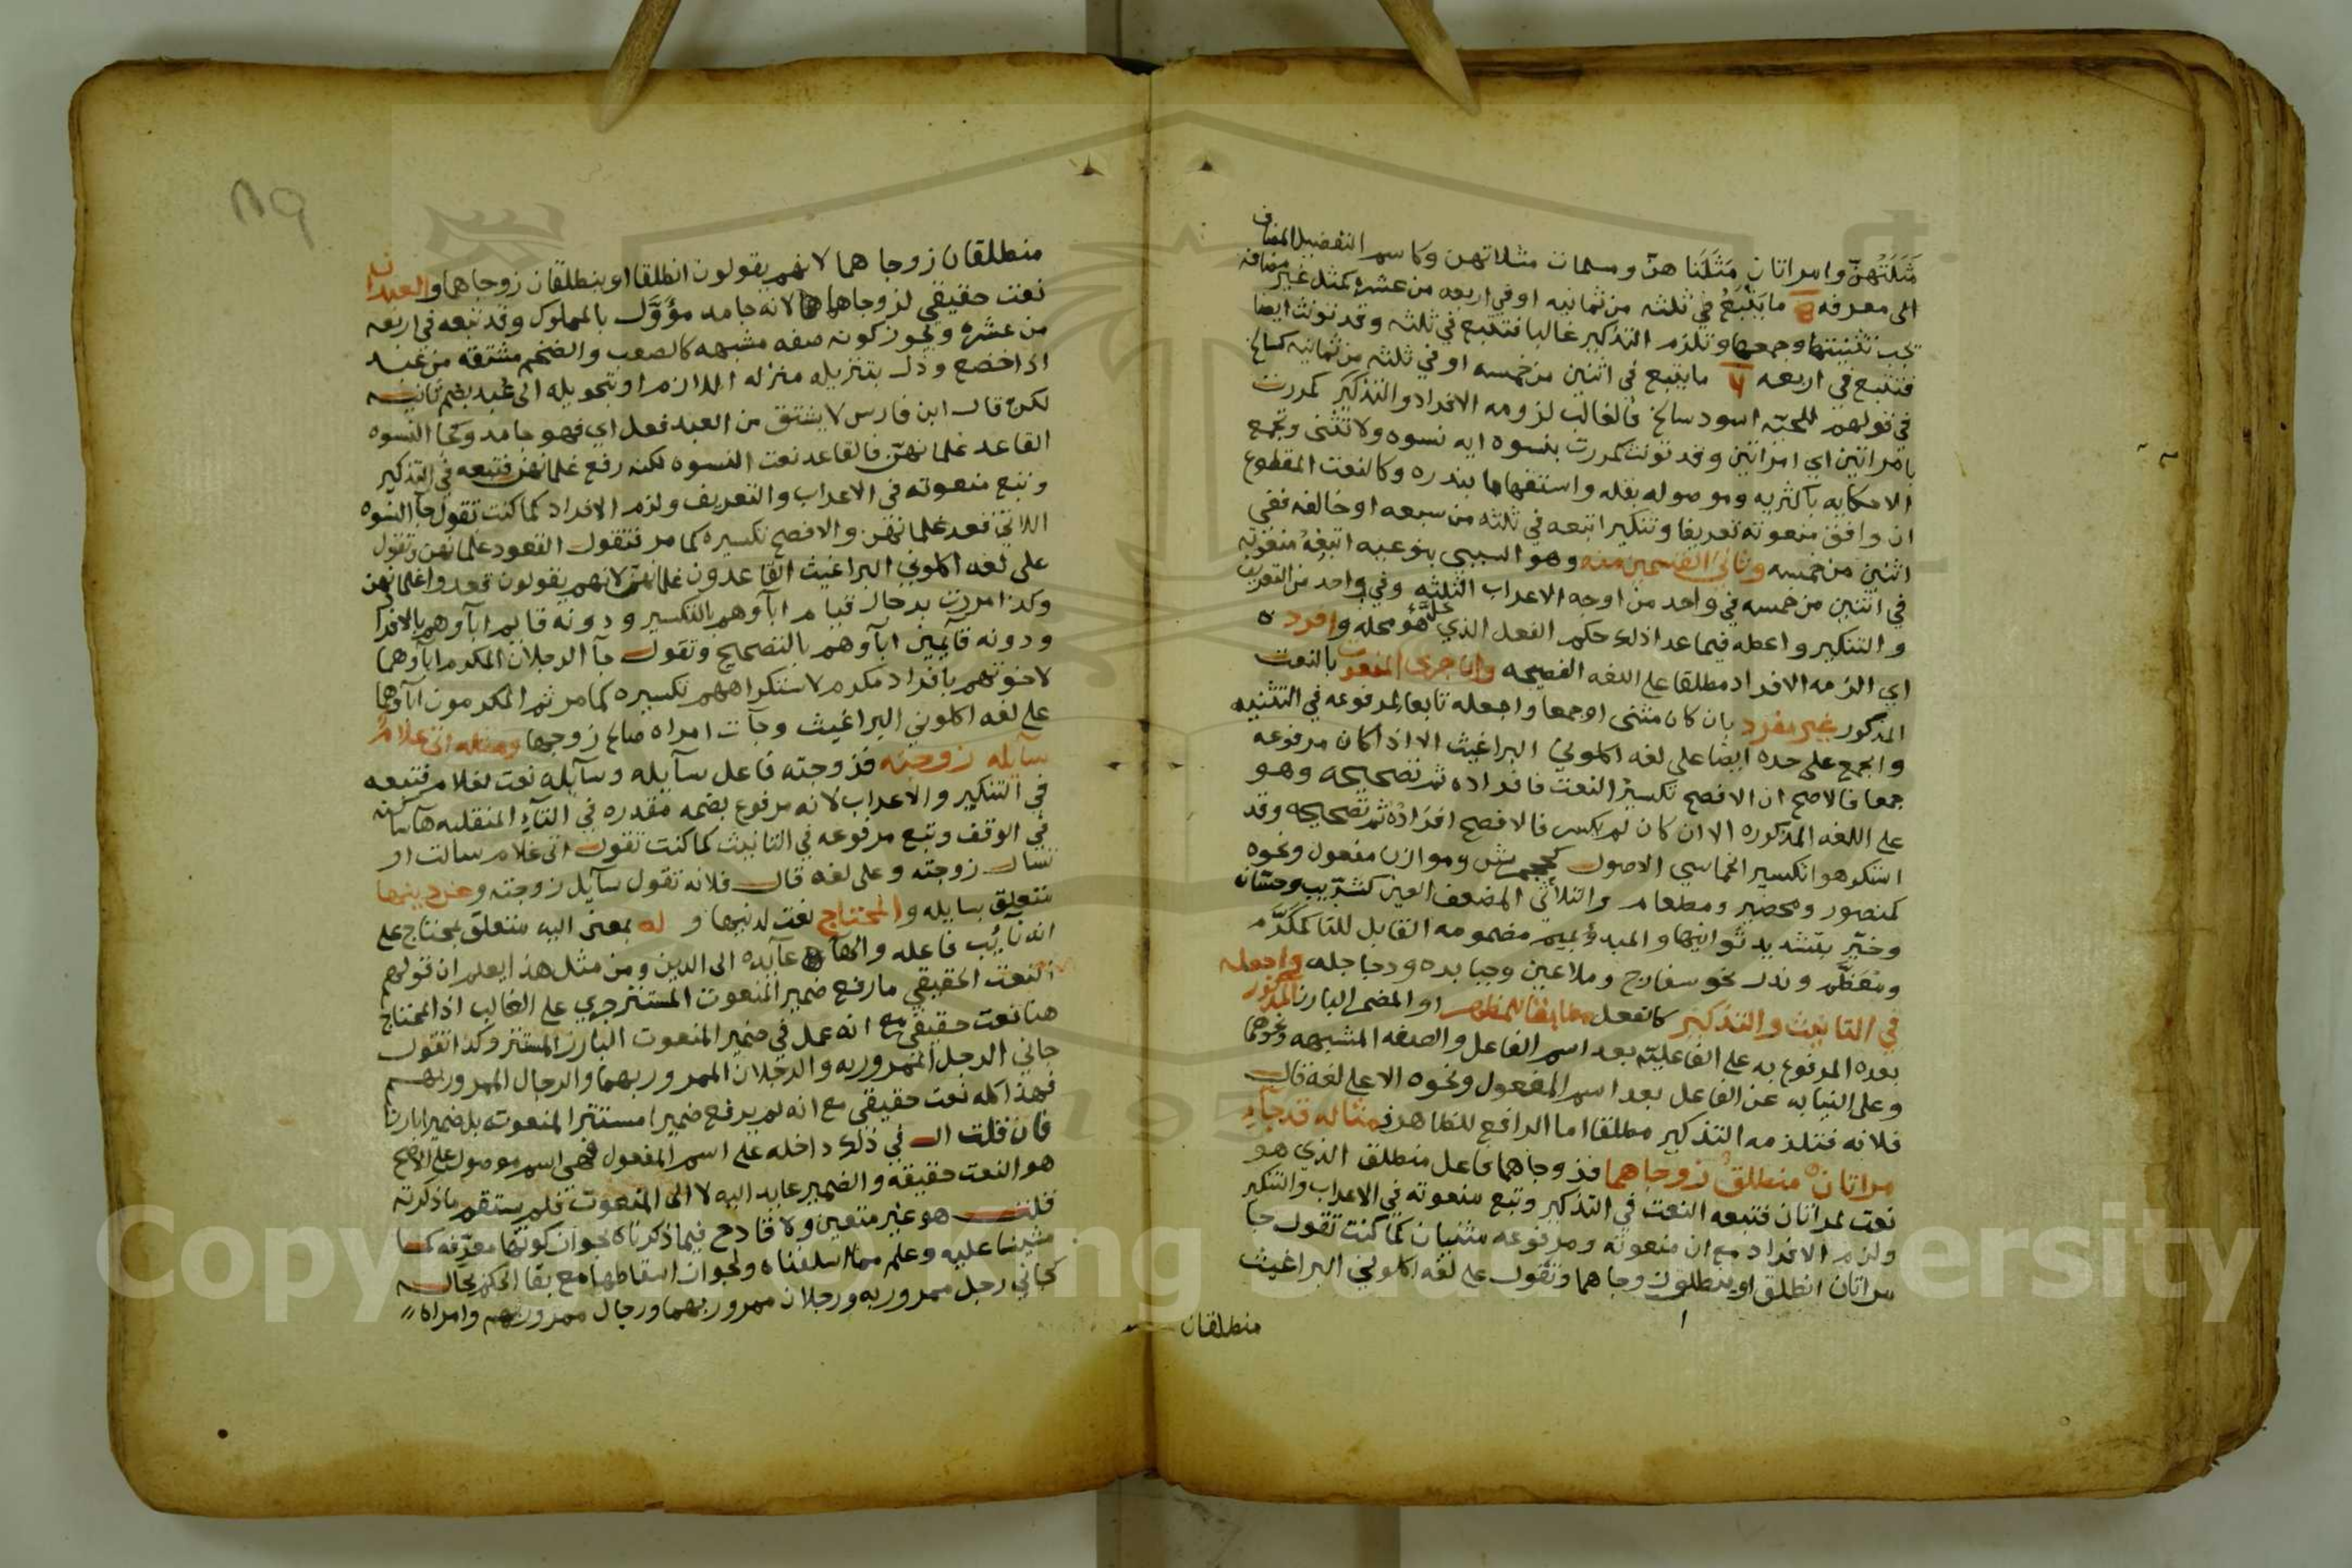 مَثَلَتُهُنّ وامراتان مَثَلَنا هنّ ومسلمات مثلاتهن وكاسم التفضيل المضاف
الى معرفه ما يَتْبَعُ في ثلثه من ثمانيه او في اربعه من عشره كمثل غير مضافه
تجب تثنيتها وجمعها وتلزم التذكير غالبا فتتبع في ثلثه وقد تونث ايضا
فتتبع في اربعه ما يتبع في اثنين من خمسه او في ثلثه من ثمانيه كسالخ
في قولهم للحيّه اسود سالخ فالغالب لزومه الافراد والتذكير كمررت
بامراتين اي امراتين وقد تونث كمررت بنسوه ايه نسوه ولا تثنى وتجمع
الا حكايه باكثريه وموصوله بقله واستفهاما بندره وكالنعت المقطوع
ان وافق منعوته تعريفا وتنكيرا تبعه في ثلثه من سبعه او خالفه ففي
اثنين من خمسه وثاني القسمين منه وهو السببي بنوعيه اتبِعْهُ منعوته
في اثنين من خمسه في واحد من اوجه الاعراب الثلثه وفي واحد من التعريف
والتنكير واعطه فيما عدا ذلك حكم الفعل الذي هو محله وافرد ه
اي الزمه الافراد مطلقا على اللغه الفصيحه وان جرى المنعوت بالنعت
المذكور غير مفرد بان كان مثنى او جمعا واجعله تابعا لمرفوعه في التثنيه
والجمع على حده ايضا على لغه اكلوني البراغيث الا اذا كان مرفوعه
جمعا فالاصح ان الافصح تكسيرُ النعت فافراده ثم تصحيحه وهو
على اللغه المذكوره الا ان كان لم يكسر فالافصح افرَادُه ثم تصحيحه وقد
استكرهوا تكسير الخماسي الاصول كجحمرش وموازن مفعول ونحوه
كمنصور ومحضير ومطعام والثلاثي المضعف العين كشرّيب وحسّان
وخيّر بتشديد ثوانيها والمبدؤ بميم مضمومه القابل للتا كمكَرّم
ومُعَظَّم وندر نحو سفارج وملاعين وجبابده ودجاجله واجعله
في التانيث والتذكير كالفعل مطابقا للمظهر او المضمر البارز المذكور
بعده المرفوع به على الفاعليّه بعد اسم الفاعل والصفه المشبهه ونحوهما
وعلى النيابه عن الفاعل بعد اسم المفعول ونحوه الا على لغه قال
فلانه فتلزمه التذكير مطلقا اما الرافع للظاهر فمثاله قد جاءِ
مراتان منطلقٌ زوجاهما فزوجاهما فاعل منطلق الذي هو
نعت لمراتان فتبعه النعت في التذكير وتبع منعوته في الاعراب والتنكير
ولزم الافراد مع ان منعوته ومرفوعه مثنيان كما كنت تقول جا
مراتان انطلق او ينطلق زوجاهما وتقول على لغه اكلوني البراغيث
منطلقان
منطلقان زوجاهما لانهم يقولون انطلقا او ينطلقان زوجاهما والعبدان
نعت حقيقي لزوجاهما لانه جامد مؤوَّل بالمملوك وقد تبعه في اربعه
من عشره ويجوز كونه صفه مشبهه كالصعب والضخم مشتقه من عبد
اذا خضع وذلك بتنزيله منزله اللازم او بتحويله الى عَبُد بضم ثانيه
لكن قال ابن فارس لا يشتق من العبد فعل اي فهو جامد وكجا النسوه
القاعد غلمانهنّ فالقاعد نعت النسوه لكنه رفع غلمانهن فتبعه في التذكير
وتبع منعوته في الاعراب والتعريف ولزم الافراد كما كنت تقول جآ النسوه
اللاتي قعد غلمانهن والافصح تكسيره كما مر فتقول القعود غلمانهن وتقول
على لغه اكلوني البراغيث القاعدون غلمانهنّ لانهم يقولون قعدوا غلمانهن
وكذا مررت برجال قيام ابآوهم بالتكسير ودونه قايم ابآوهم بالافراد
ودونه قآيمين ابآوهم بالتصحيح وتقول جآ الرجلان المكرم ابآوهما
لاخوتهم بافراد مكرم لاستكراههم تكسيره كما مر ثم المكرمون ابآوهما
على لغه اكلوني البراغيث وجآت امراه صالح زوجها ومثله اتى غلامٌ
سآيله زوجته فزوجته فاعل سآيله وسآيله نعت لغلام فتبعه
في التنكير والاعراب لانه مرفوع بضمه مقدره في التآءِ المنقلبه هآ ساكنه
في الوقف وتبع مرفوعه في التانيث كما كنت تقول اتى غلام سالت او
تسال زوجته وعلى لغه قال فلانه تقول سآيل زوجته وعن دينها
متعلق بسايله والمحتاج نعت لدينها و له بمعنى اليه متعلق بمحتاج على
انه نآيب فاعله والهآ عآيده الى الدين ومن مثل هذا يعلم ان قولهم
النعت الحقيقي ما رفع ضمير المنعوت المستتر جرى على الغالب اذ المحتاج
هنا نعت حقيقي مع انه عمل في ضمير المنعوت البارز لا المستتر وكذا تقول
جاني الرجل الممرور به والرجلان الممرور بهما والرجال الممرور بهم
فهذا كله نعت حقيقي مع انه لم يرفع ضميرا مستترا لمنعوته بل ضميرا بارزا
فان قلت ال في ذلك داخله على اسم المفعول فهي اسم موصول على الاصح
هو النعت حقيقه والضمير عايد اليه لا الى المنعوت فلم يستقم ما ذكرته
قلت هو غير متعين ولا قادح فيما ذكرناه لجواز كونها معرّفه كما
مشينا عليه وعلم مما اسلفناه ولجواز اسقاطها مع بقا الحكم بحاله
كجاني رجل ممرور به ورجلان ممرور بهما ورجال ممرور بهم وامراه